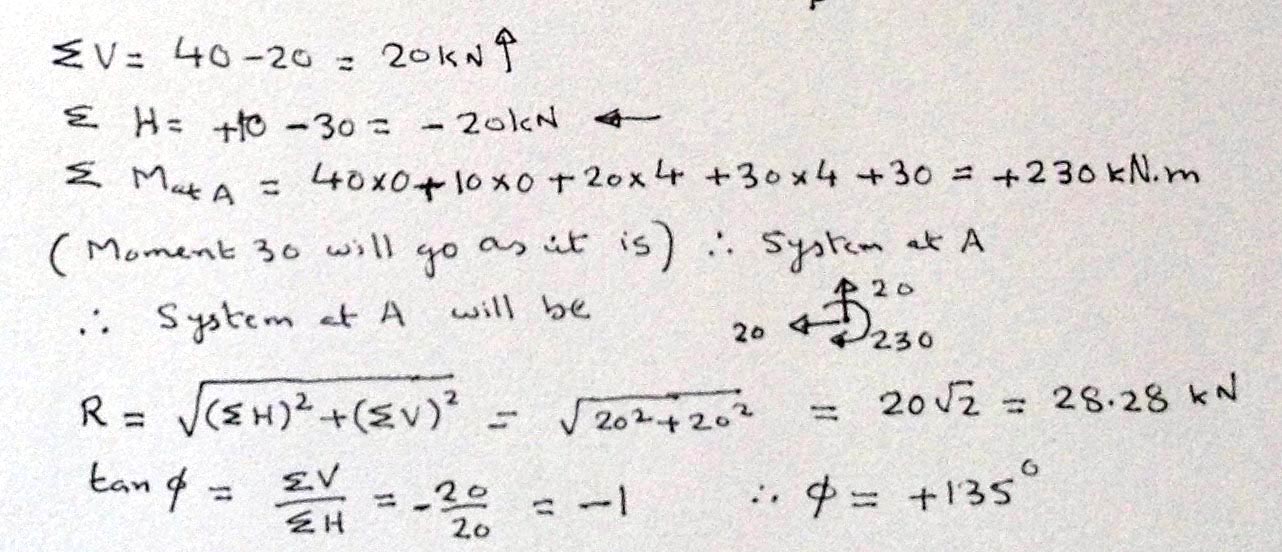 ΣV = 40 - 20 = 20 kN ↑
Σ H = +10 - 30 = - 20 kN ←
Σ M at A = 40x0 + 10x0 + 20x4 + 30x4 + 30 = +230 kN.m
(Moment 30 will go as it is) ∴ System at A
∴ System at A will be 20 ← ↑ 20 230
R = √(ΣH)² + (ΣV)² = √20² + 20² = 20√2 = 28.28 kN
tan ϕ = ΣV/ΣH = - 20/20 = -1 ∴ ϕ = +135°